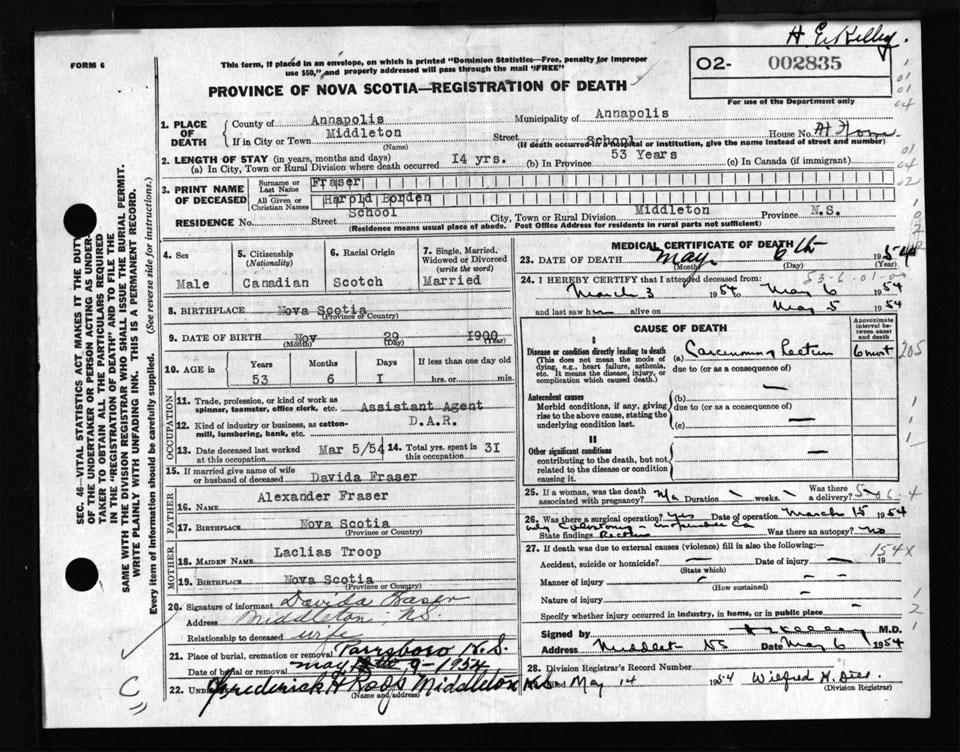 H E Kelley.
FORM 6
This form, if placed in an envelope, on which is printed "Dominion Statistics—Free, penalty for improper
use $50," and properly addressed will pass through the mail "FREE"
O2- 002835
For use of the Department only
PROVINCE OF NOVA SCOTIA—REGISTRATION OF DEATH
1. PLACE OF DEATH { County of Annapolis Municipality of Annapolis
If in City or Town Middleton Street School House No.
(Name) (If death occurred in a hospital or institution, give the name instead of street and number)
2. LENGTH OF STAY (in years, months and days)
(a) In City, Town or Rural Division where death occurred 14 yrs. (b) In Province 53 Years (c) In Canada (if immigrant)
3. PRINT NAME OF DECEASED { Surname or Last Name Fraser
All Given or Christian Names Harold Borden
RESIDENCE No. Street School City, Town or Rural Division Middleton Province N.S.
(Residence means usual place of abode. Post Office Address for residents in rural parts not sufficient)
4. Sex Male
5. Citizenship (Nationality) Canadian
6. Racial Origin Scotch
7. Single, Married, Widowed or Divorced (write the word) Married
8. BIRTHPLACE Nova Scotia
(Province or Country)
9. DATE OF BIRTH Nov 29 1900
(Month) (Day) (Year)
10. AGE in Years Months Days If less than one day old
53 6 I hrs. or min.
OCCUPATION
11. Trade, profession, or kind of work as spinner, teamster, office clerk, etc. Assistant Agent
12. Kind of industry or business, as cotton-mill, lumbering, bank, etc. D.A.R.
13. Date deceased last worked at this occupation Mar 5/54
14. Total yrs. spent in this occupation 31
15. If married give name of wife or husband of deceased Davida Fraser
FATHER
16. Name Alexander Fraser
17. Birthplace Nova Scotia
(Province or Country)
MOTHER
18. Maiden Name Laclias Troop
19. Birthplace Nova Scotia
(Province or Country)
20. Signature of informant Davida Fraser
Address Middleton, N.S.
Relationship to deceased wife
21. Place of burial, cremation or removal Parrsboro N.S.
Date of burial or removal May 9-1954
22. Undertaker Frederick H Roop Middleton N.S.
(Name and address)
MEDICAL CERTIFICATE OF DEATH
23. DATE OF DEATH May 6th 1954
(Month) (Day) (Year)
24. I HEREBY CERTIFY that I attended deceased from:
March 3 1954 to May 6 1954
and last saw him alive on May 5 1954
CAUSE OF DEATH
Approximate interval between onset and death
I
Disease or condition directly leading to death
(This does not mean the mode of dying, e.g., heart failure, asthenia, etc. It means the disease, injury, or complication which caused death.)
(a) Carcinoma of Rectum 6 mos
due to (or as a consequence of)
Antecedent causes
Morbid conditions, if any, giving rise to the above cause, stating the underlying condition last.
(b)
due to (or as a consequence of)
(c)
II
Other significant conditions
contributing to the death, but not related to the disease or condition causing it.
25. If a woman, was the death associated with pregnancy? N/a Duration weeks. Was there a delivery?
26. Was there a surgical operation? Yes Date of operation March 15 1954
only Colostomy - inoperable Ca
State findings Rectum Was there an autopsy? No
27. If death was due to external causes (violence) fill in also the following:—
Accident, suicide or homicide? Date of injury
(State which)
Manner of injury
(How sustained)
Nature of injury
Specify whether injury occurred in industry, in home, or in public place
Signed by H E Kelley M.D.
Address Middleton NS Date May 6 1954
28. Division Registrar's Record Number
Filed May 14 1954 Wilfred H. Dill
(Division Registrar)
SEC. 46—VITAL STATISTICS ACT MAKES IT THE DUTY
OF THE UNDERTAKER OR PERSON ACTING AS UNDER-
TAKER TO OBTAIN ALL THE PARTICULARS REQUIRED
IN THE "REGISTRATION OF DEATH" AND TO FILE THE
SAME WITH THE DIVISION REGISTRAR WHO SHALL ISSUE THE BURIAL PERMIT.
WRITE PLAINLY WITH UNFADING INK. THIS IS A PERMANENT RECORD.
Every item of information should be carefully supplied. (See reverse side for instructions.)
53-6-01-00
205
154X
C